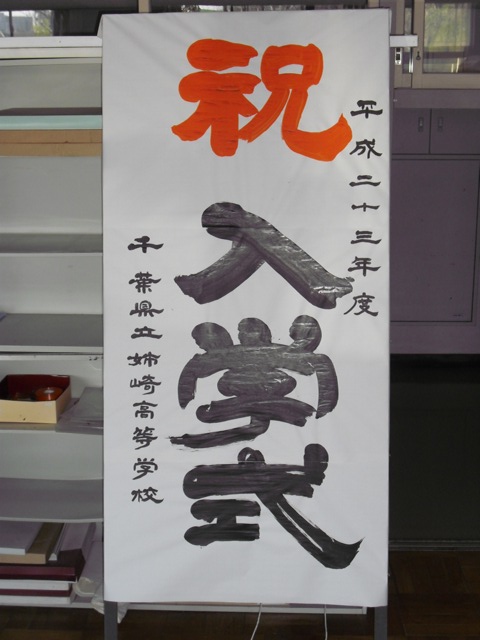 平成二十三年度
祝 入学式
千葉県立姉崎高等学校